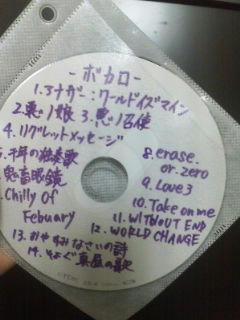 -ボカロ-
1.ヨナガー:ワールドイズマイン
2.悪ノ娘 3.悪ノ召使
4.リグレットメッセージ
5.千年の独奏歌
6.鬼畜眼鏡
7.Chilly Of
Febuary
8.erase
or.zero
9.Love3
10.Take on me
11.WITHOUT END
12.WORLD CHANGE
13.おやすみなさいの詩
14.そよぐ 真昼の歌